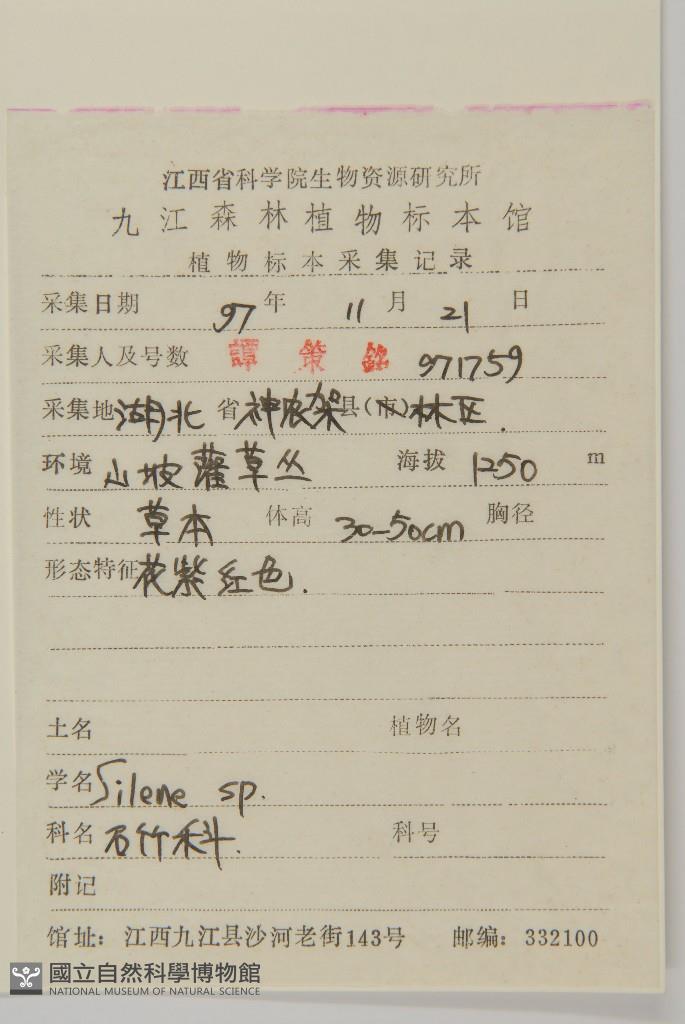 江西省科学院生物资源研究所
九江森林植物标本馆
植物标本采集记录
采集日期 97 年 11 月 21 日
采集人及号数 譚策銘 971759
采集地 湖北 省 神农架 县(市) 林区.
环境 山坡灌草丛 海拔 1250 m
性状 草本 体高 30-50cm 胸径
形态特征 花紫红色.
土名 植物名
学名 Silene sp.
科名 石竹科. 科号
附记
馆址: 江西九江县沙河老街143号 邮编: 332100
國立自然科學博物館
NATIONAL MUSEUM OF NATURAL SCIENCE